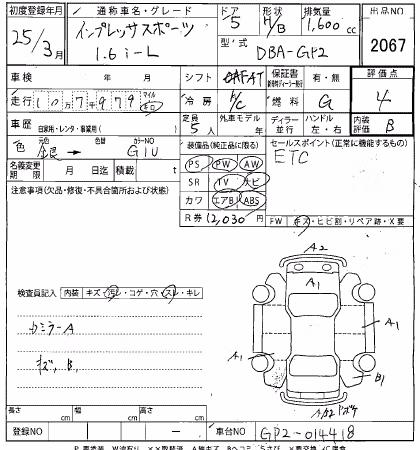 初度登録年月 通称車名・グレード ドア 形状 排気量 出品NO
25/3月 インプレッサスポーツ 1.6i-L 5 H/B 1,600cc 2067
型式 DBA-GP2
車検 年 月 シフト FAT 保証書 有・無 評価点
走行 10万7千979 マイル km 冷房 A/C 燃料 G 4
車歴 自家用・レンタ・事業用( ) 定員 5人 外車モデル年 ディーラー 並行 ハンドル 左・右 内装評価 B
色 元色 銀 → 色替 カラーNO G1U
装備品(純正品に限る) セールスポイント(正常に機能するもの)
PS PW AW ETC
名義変更期限 月 日迄 積載 t
SR TV ナビ
注意事項(欠品・修復・不具合箇所および状態)
カワ エアB ABS
R券 12,030円 FW キズ・ヒビ割・リペア跡・X要
A2
A1
検査員記入 内装 キズ・汚レ・コゲ・穴・スレ・キレ
カミラーA
A1
A1
キズ, B,
B1
A2
長さ cm 幅 cm 高さ cm
登録NO ー 車台NO GP2-014418